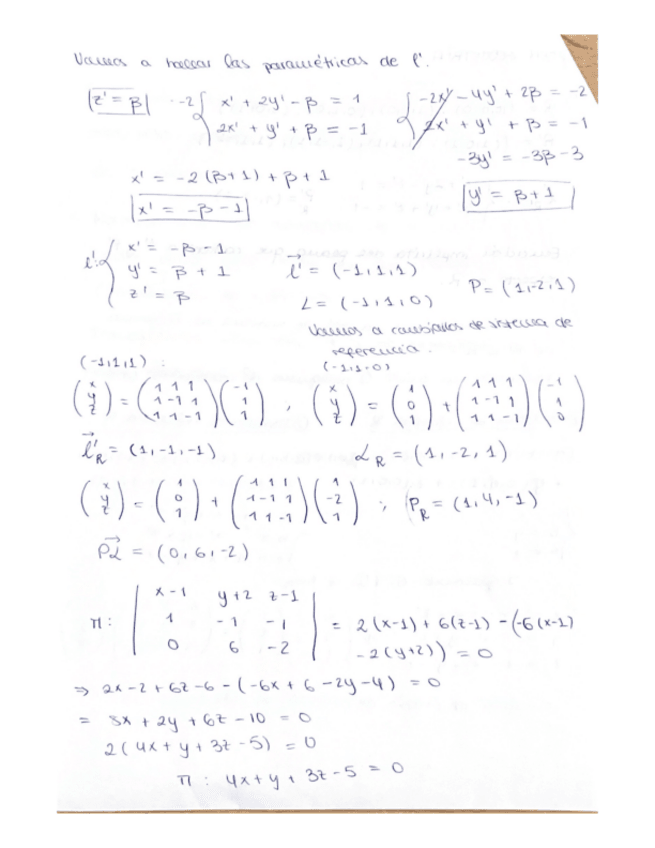 Vamos a hallar las paramétricas de l'.
z' = β · -2 { x' + 2y' - β = 1 { -2x' - 4y' + 2β = -2
2x' + y' + β = -1 2x' + y' + β = -1
-3y' = -3β - 3
x' = -2(β+1) + β + 1
x' = -β - 1 y' = β + 1
l': { x' = -β - 1
y' = β + 1 l⃗' = (-1, 1, 1)
z' = β L = (-1, 1, 0) P = (1, -2, 1)
Vamos a cambiarlos de sistema de
referencia.
(-1,1,1) : (-1,1,0)
(x y z) = (1 1 1 / 1 -1 1 / 1 1 -1) (-1 1 1) , (x y z) = (1 0 1) + (1 1 1 / 1 -1 1 / 1 1 -1) (-1 1 0)
l⃗'_R = (1, -1, -1) L_R = (1, -2, 1)
(x y z) = (1 0 1) + (1 1 1 / 1 -1 1 / 1 1 -1) (1 -2 1) ; P_R = (1, 4, -1)
PL⃗ = (0, 6, -2)
π: | x-1 y+2 z-1 |
| 1 -1 -1 | = 2(x-1) + 6(z-1) - (-6(x-1)
| 0 6 -2 | -2(y+2)) = 0
⇒ 2x - 2 + 6z - 6 - (-6x + 6 - 2y - 4) = 0
= 8x + 2y + 6z - 10 = 0
2(4x + y + 3z - 5) = 0
π : 4x + y + 3z - 5 = 0